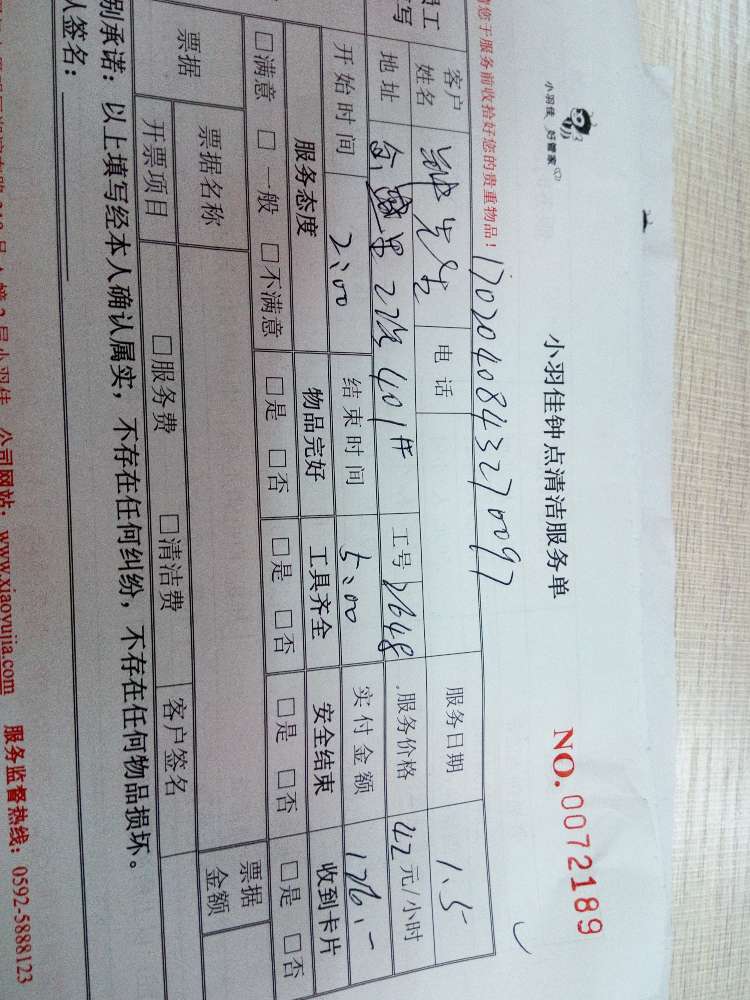 小羽佳 好管家
小羽佳钟点清洁服务单
NO.0072189
您于服务前收拾好您的贵重物品！
1702040843270097
客户姓名 钟先生 电话 服务日期 1.5
地址 401# 工号 2648 服务价格 42 元/小时
开始时间 2:00 结束时间 5:00 实付金额 126.-
服务态度 物品完好 工具齐全 安全结束 收到卡片
□满意 □一般 □不满意 □是 □否 □是 □否 □是 □否 □是 □否
票据 票据名称 票据金额
开票项目 □服务费 □清洁费 客户签名
别承诺：以上填写经本人确认属实，不存在任何纠纷，不存在任何物品损坏。
人签名：
小羽佳 公司网站：www.xiaoyujia.com 服务监督热线：0592-5888123